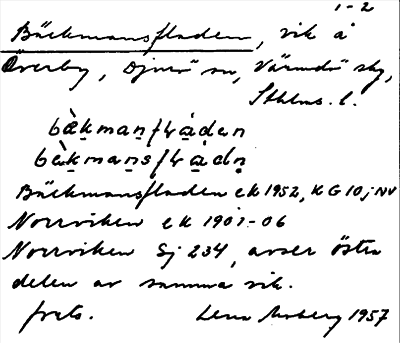 1-2
Bäckmansfladen, vik å
Överby, Djurö sn, Värmdö skg,
Sthlms l.
bæ̀kmanflàden
bæ̀kmansflàdn
Bäckmansfladen ek 1952, K G 10 j NV
Norrviken ek 1901-06
Norrviken Sj 234, avser östra
delen av samma vik.
Lena 1957